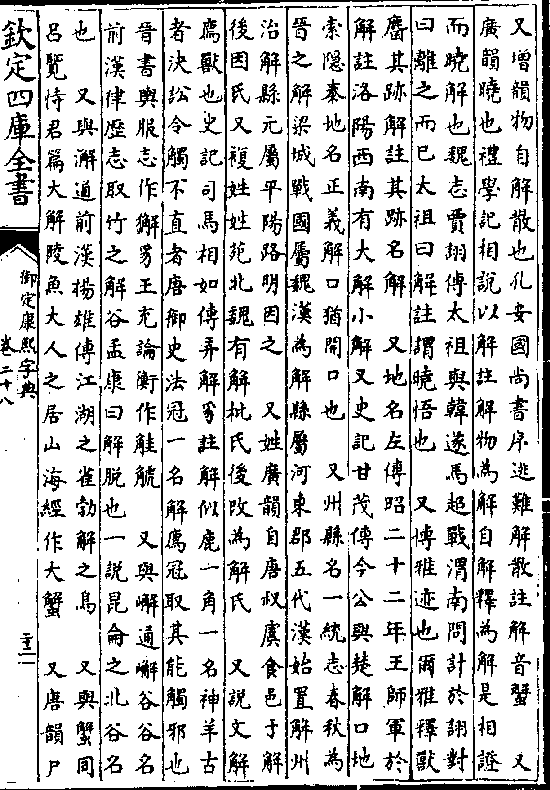 又增韻物自解散也孔安國尚書序逃難解散註解音蟹　又
廣韻曉也禮學記相說以解註解物為解自解釋為解是相證
而曉解也魏志賈詡傳太祖與韓遂馬超戰渭南問計於詡對
曰離之而已太祖曰解註謂曉悟也　又博雅迹也爾雅釋獸
麕其跡解註其跡名解　又地名左傳昭二十二年王師軍於
解註洛陽西南有大解小解又史記甘茂傳今公與楚解口地
索隱秦地名正義解口猶開口也　又州縣名一統志春秋為
晉之解梁城戰國屬魏漢為解縣屬河東郡五代漢始置解州
治解縣元屬平陽路明因之　又姓廣韻自唐叔虞食邑于解
後因氏又複姓姓苑北魏有解枇氏後改為解氏　又說文解
廌獸也史記司馬相如傳弄解豸註解似鹿一角一名神羊古
者決訟令觸不直者唐御史法冠一名解廌冠取其能觸邪也
晉書輿服志作獬豸王充論衡作觟𧣾　又與嶰通嶰谷谷名
前漢律歷志取竹之解谷孟康曰解脫也一說昆侖之北谷名
也　又與澥通前漢揚雄傳江湖之雀勃解之鳥　又與蟹同
呂覽恃君篇大解陵魚大人之居山海經作大蟹　又唐韻戶
欽定四庫全書
御定康熙字典
卷二十八